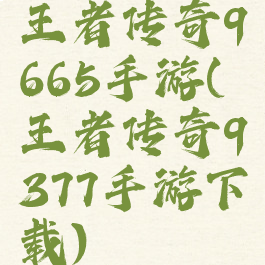 王者传奇9
665手游(
王者传奇9
377手游下
载)